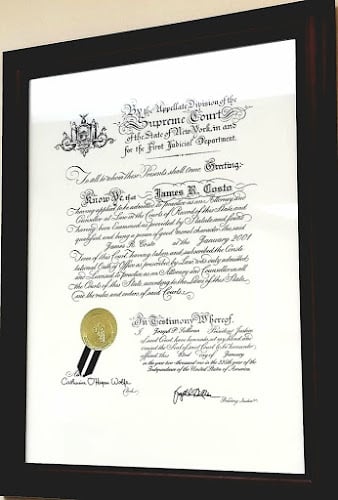 By the Appellate Division of the
Supreme Court
of the State of New York, in and
for the First Judicial Department.
To all to whom these Presents shall come Greeting:
Know Ye, that James R. Costa
having applied to be admitted to practice as an Attorney and
Counselor at Law in the Courts of Record of this State and
having been Examined as prescribed by Statute and found
qualified, and being a person of good moral character, the said
James R. Costa at the January 2001
Term of this Court having taken and subscribed the Consti-
tutional Oath of Office as prescribed by Law was duly admitted
and Licensed to practice as an Attorney and Counselor in all
the Courts of this State according to the Laws of this State
and the rules and orders of said Courts.
In Testimony Whereof,
I Joseph P. Sullivan Presiding Justice
of said Court, have hereunto set my hand and
caused the Seal of said Court to be hereunto
affixed this day of January
in the year two thousand one in the 225th year of the
Independence of the United States of America.
Catherine O'Hagan Wolfe
Clerk
Presiding Justice